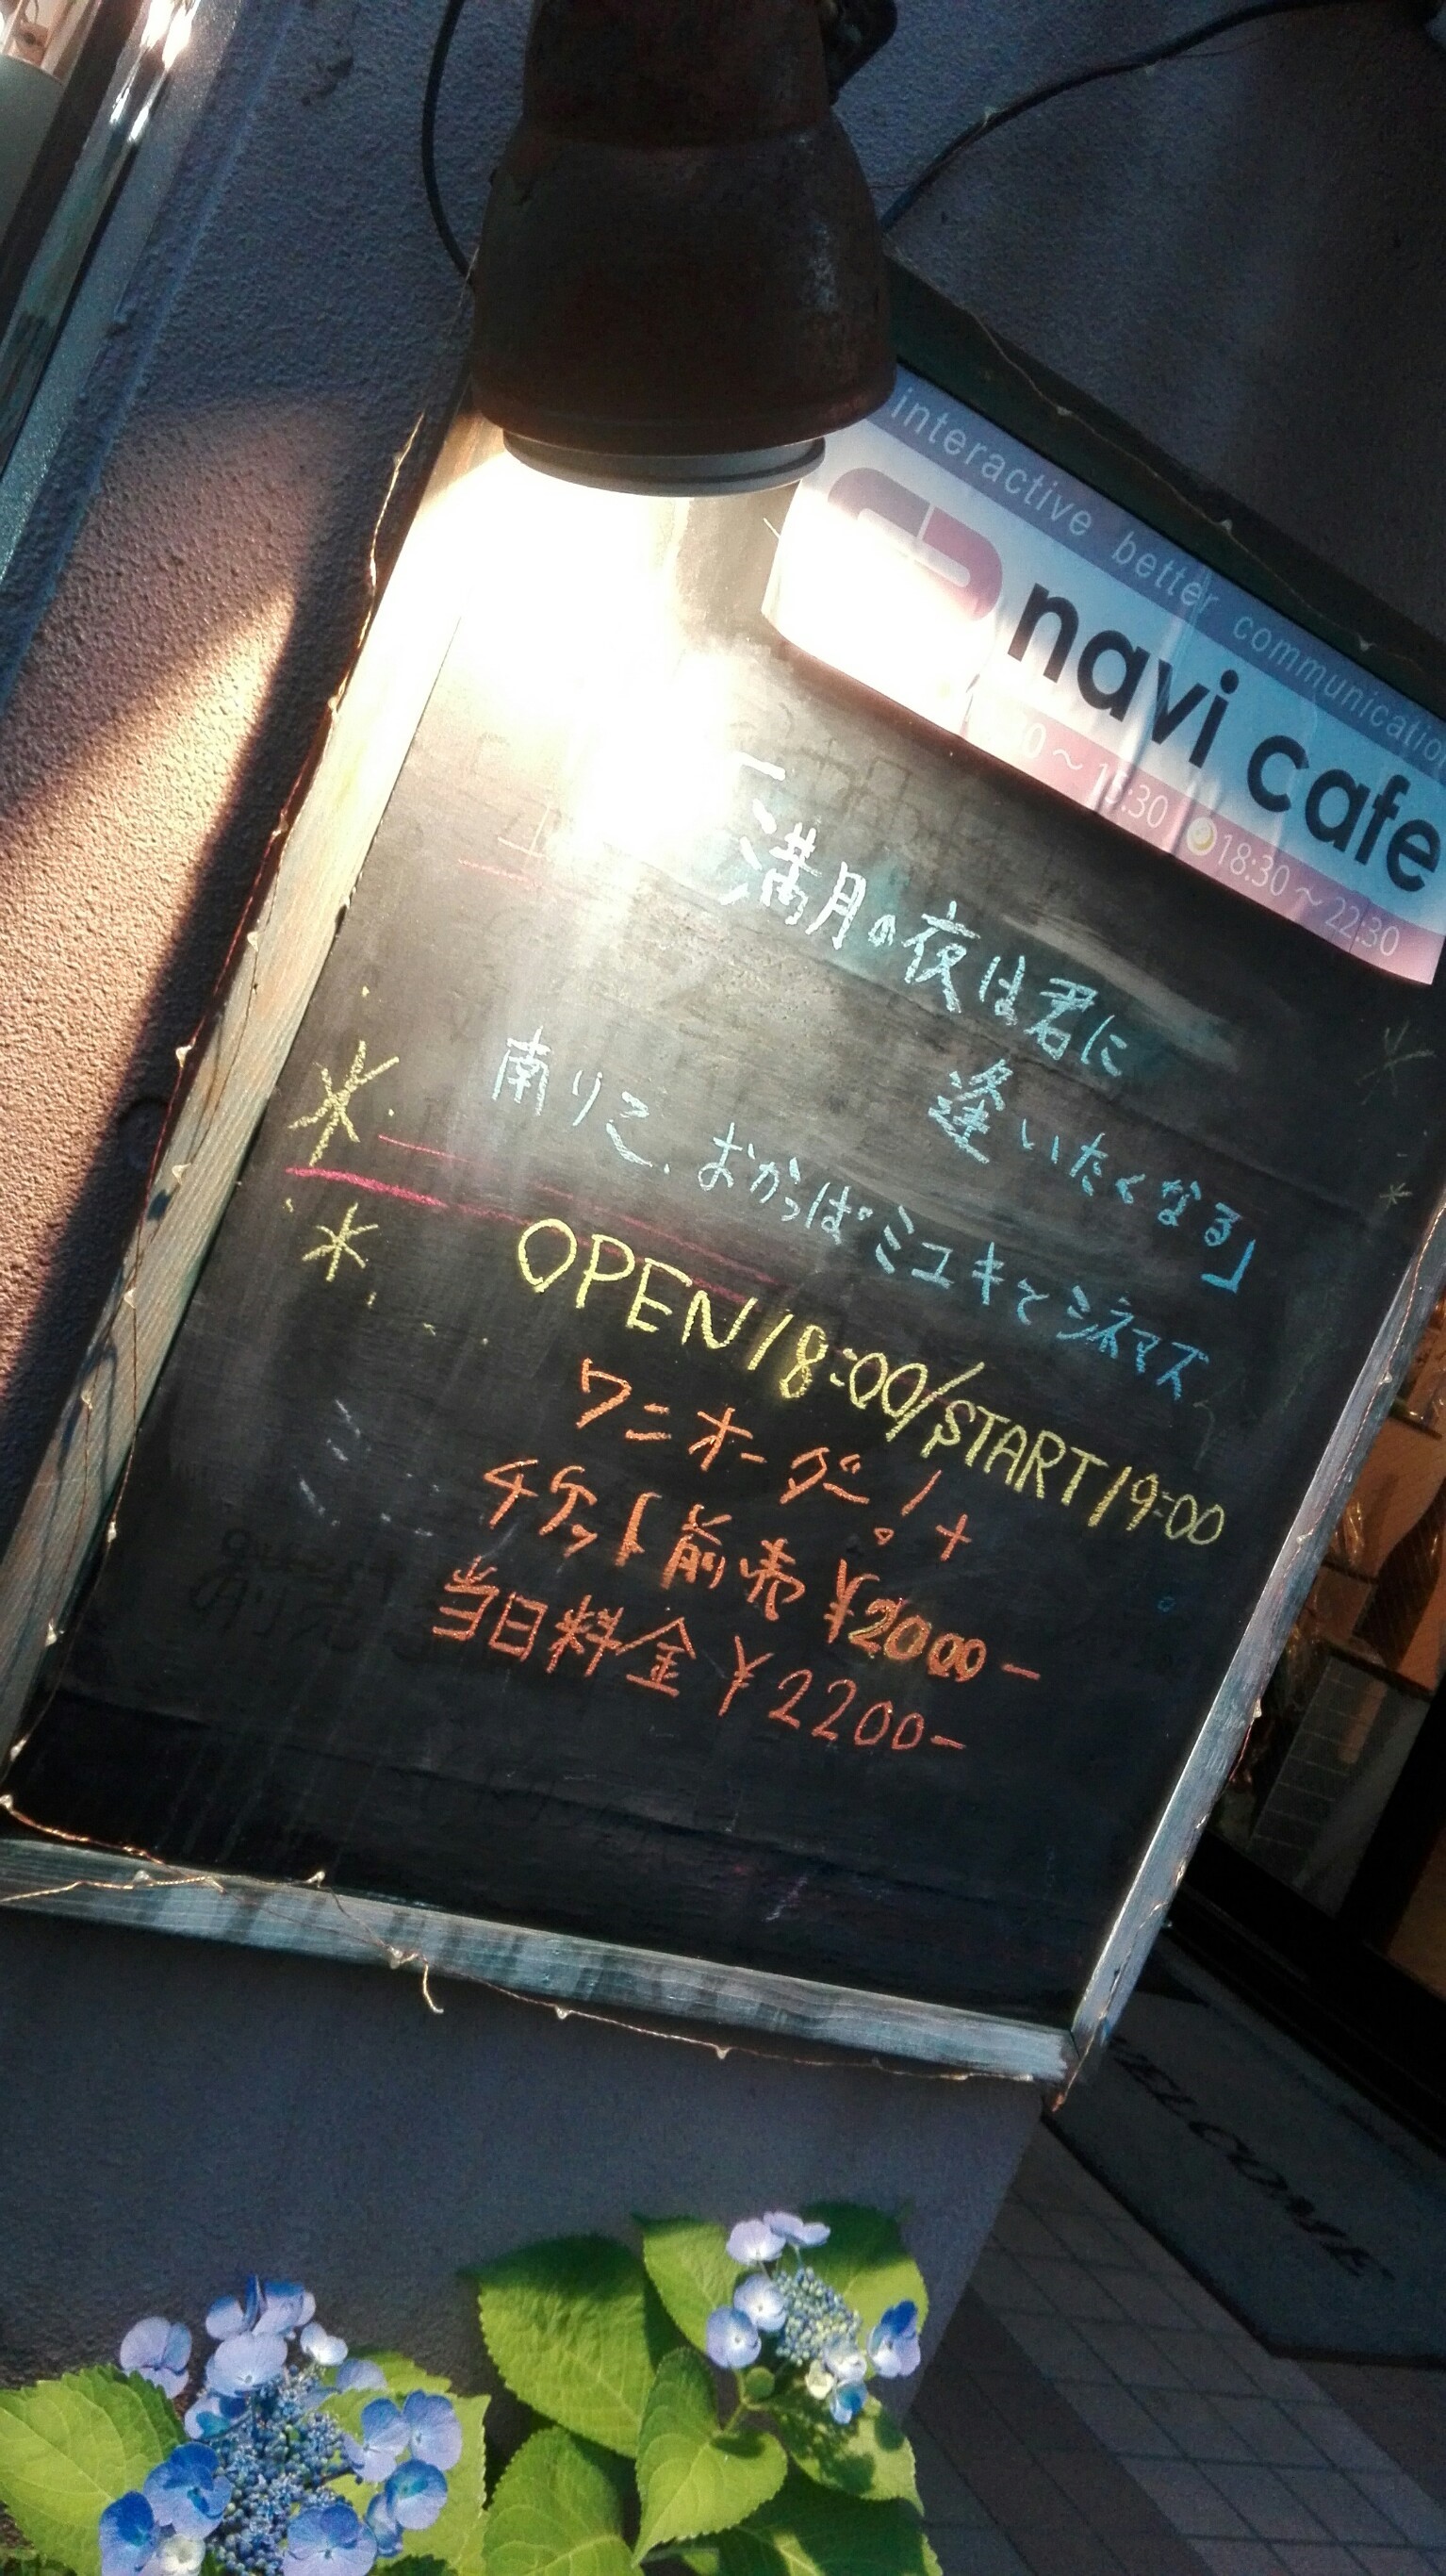 interactive better communicatio
navi cafe
18:30～22:30
「満月の夜は君に
逢いたくなる」
南りこ、おかっぱミユキとシネマズ
OPEN18:00/START19:00
ワンオーダー!+
チケット前売¥2000-
当日料金¥2200-
WELCOME